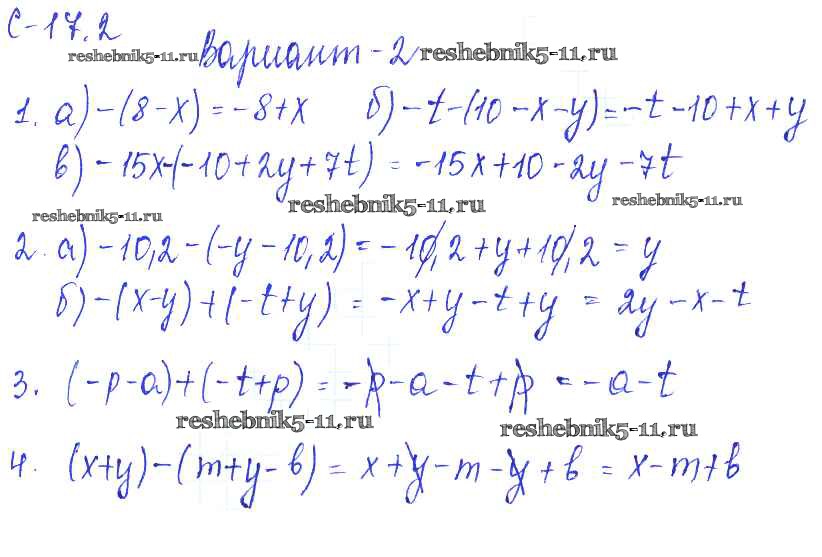 С-17.2
reshebnik5-11.ru Вариант-2 reshebnik5-11.ru
1. а) -(8-x) = -8+x б) -t-(10-x-y)=-t-10+x+y
в) -15x-(-10+2y+7t) = -15x+10-2y-7t
reshebnik5-11.ru reshebnik5-11.ru reshebnik5-11.ru
2. а) -10,2-(-y-10,2) = -10,2+y+10,2 = y
б) -(x-y)+(-t+y) = -x+y-t+y = 2y-x-t
3. (-p-a)+(-t+p) = -p-a-t+p = -a-t
reshebnik5-11.ru reshebnik5-11.ru
4. (x+y)-(m+y-b) = x+y-m-y+b = x-m+b